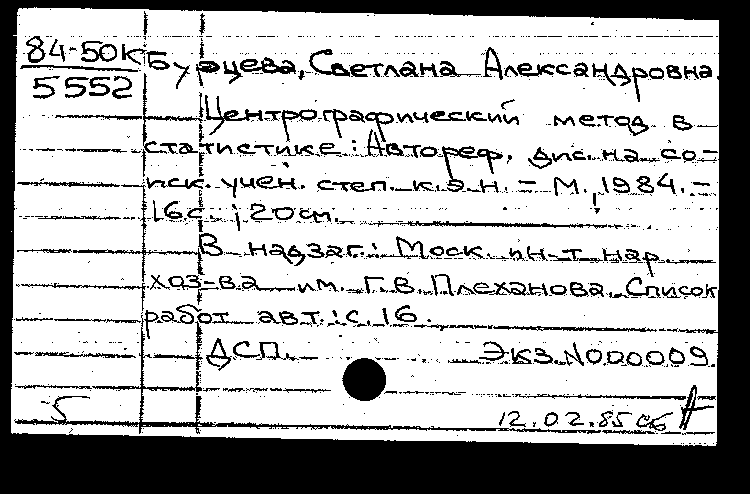 84-50К
5552
Бурцева, Светлана Александровна.
Центрографический метод в
статистике: Автореф. дис. на со-
иск. учен. степ. к.э.н. - М., 1984. -
16с. ; 20см.
В надзаг.: Моск. ин-т нар.
хоз-ва им. Г.В. Плеханова. Список
работ авт.: с. 16.
ДСП. Экз. N000009.
5 12.02.85